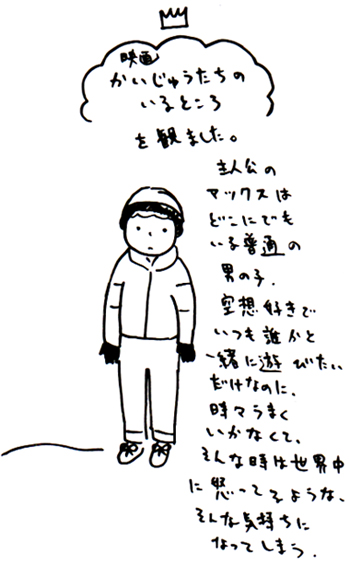 映画
かいじゅうたちの
いるところ
を観ました。
主人公の
マックスは
どこにでも
いる普通の
男の子．
空想好きで
いつも誰かと
一緒に遊びたい
だけなのに、
時々うまく
いかなくて、
そんな時は世界中
に怒ってるような、
そんな気持ちに
なってしまう．